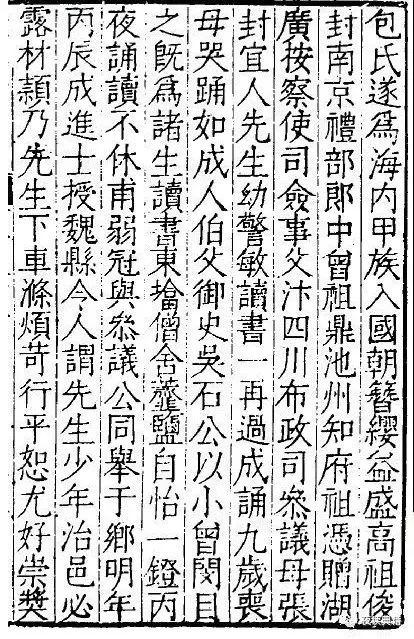 包氏遂爲海内甲族入國朝簪纓益盛高祖俊
封南京禮部郎中曾祖鼎池州知府祖憑贈湖
廣按察使司僉事父汴四川布政司叅議母張
封宜人先生幼警敏讀書一再過成誦九歲喪
母哭踊如成人伯父御史吳石公以小曾閔目
之旣爲諸生讀書東墖僧舍虀鹽自怡一鐙丙
夜誦讀不休甫弱冠與叅議公同舉于鄉明年
丙辰成進士授魏縣令人謂先生少年治邑必
露材穎乃先生下車滌煩苛行平恕尤好崇獎